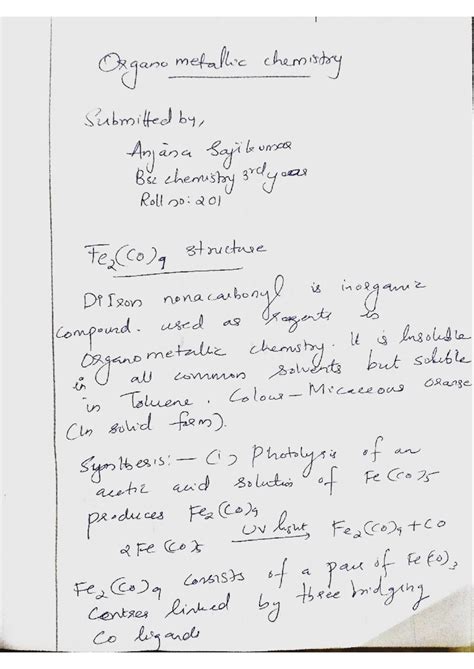 Organo metallic chemistry
Submitted by,
Anjana Sajikumar
Bsc chemistry 3rd year
Roll no: 201
Fe2(CO)9 structure
DiIron nonacarbonyl is inorganic
compound. used as reagents in
Organometallic chemistry. It is Insoluble
in all common solvents but soluble
in Toluene. Colour - Micaceous orange
(In solid form).
Synthesis:- (i) Photolysis of an
acetic acid solution of Fe(CO)5
produces Fe2(CO)9
2Fe(CO)5 UV light Fe2(CO)9 + CO
Fe2(CO)9 consists of a pair of Fe(CO)3
centres linked by three bridging
CO ligands